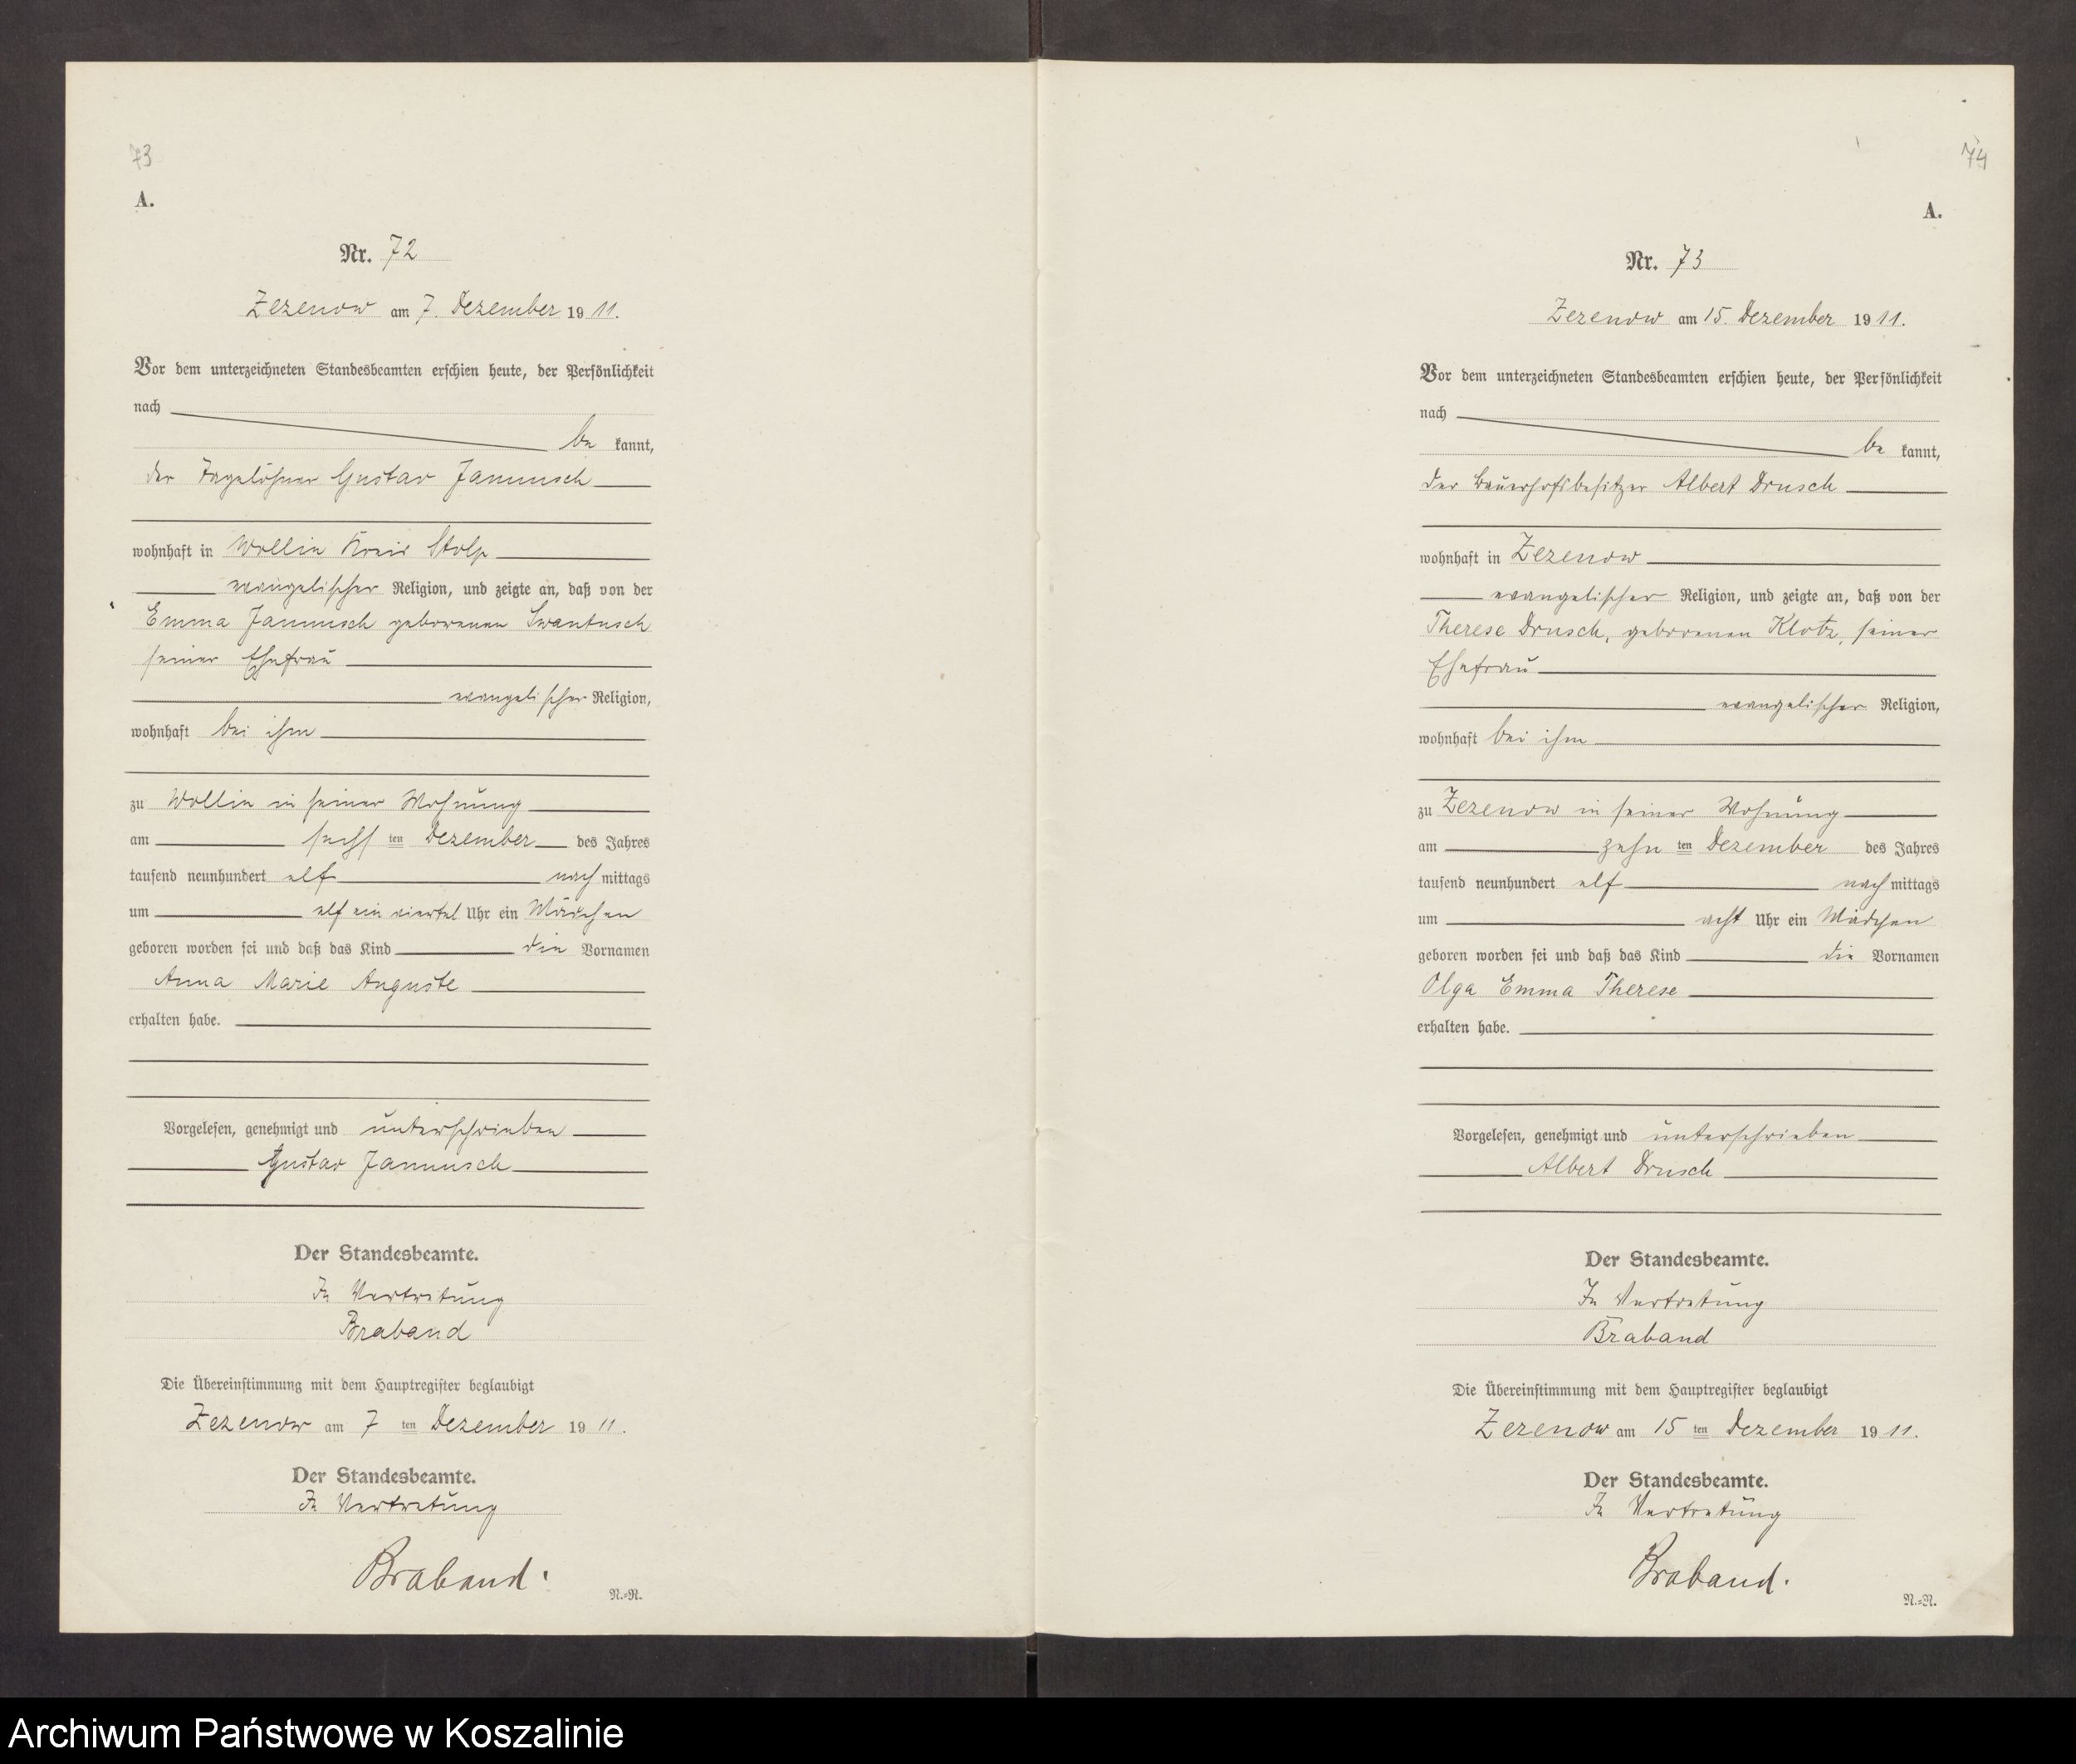 73
A.
Nr. 72
Zezenow am 7. Dezember 19 11.
Vor dem unterzeichneten Standesbeamten erschien heute, der Persönlichkeit
nach
be kannt,
der Tagelöhner Gustav Jannusch
wohnhaft in Wollin Kreis Stolp
evangelischer Religion, und zeigte an, daß von der
Emma Jannusch geborenen Swantusch
seiner Ehefrau
evangelischer Religion,
wohnhaft bei ihm
zu Wollin in seiner Wohnung
am sechs ten Dezember des Jahres
tausend neunhundert elf nach mittags
um elf ein viertel Uhr ein Mädchen
geboren worden sei und daß das Kind die Vornamen
Anna Marie Auguste
erhalten habe.
Vorgelesen, genehmigt und unterschrieben
Gustav Jannusch
Der Standesbeamte.
In Vertretung
Braband
Die Übereinstimmung mit dem Hauptregister beglaubigt
Zezenow am 7 ten Dezember 19 11.
Der Standesbeamte.
In Vertretung
Braband.
N.=N.
74
A.
Nr. 73
Zezenow am 15. Dezember 19 11.
Vor dem unterzeichneten Standesbeamten erschien heute, der Persönlichkeit
nach
be kannt,
der Bauerhofsbesitzer Albert Drusch
wohnhaft in Zezenow
evangelischer Religion, und zeigte an, daß von der
Therese Drusch, geborenen Klotz, seiner
Ehefrau
evangelischer Religion,
wohnhaft bei ihm
zu Zezenow in seiner Wohnung
am zehn ten Dezember des Jahres
tausend neunhundert elf nach mittags
um acht Uhr ein Mädchen
geboren worden sei und daß das Kind die Vornamen
Olga Emma Therese
erhalten habe.
Vorgelesen, genehmigt und unterschrieben
Albert Drusch
Der Standesbeamte.
In Vertretung
Braband
Die Übereinstimmung mit dem Hauptregister beglaubigt
Zezenow am 15 ten Dezember 19 11.
Der Standesbeamte.
In Vertretung
Braband.
N.=N.
Archiwum Państwowe w Koszalinie